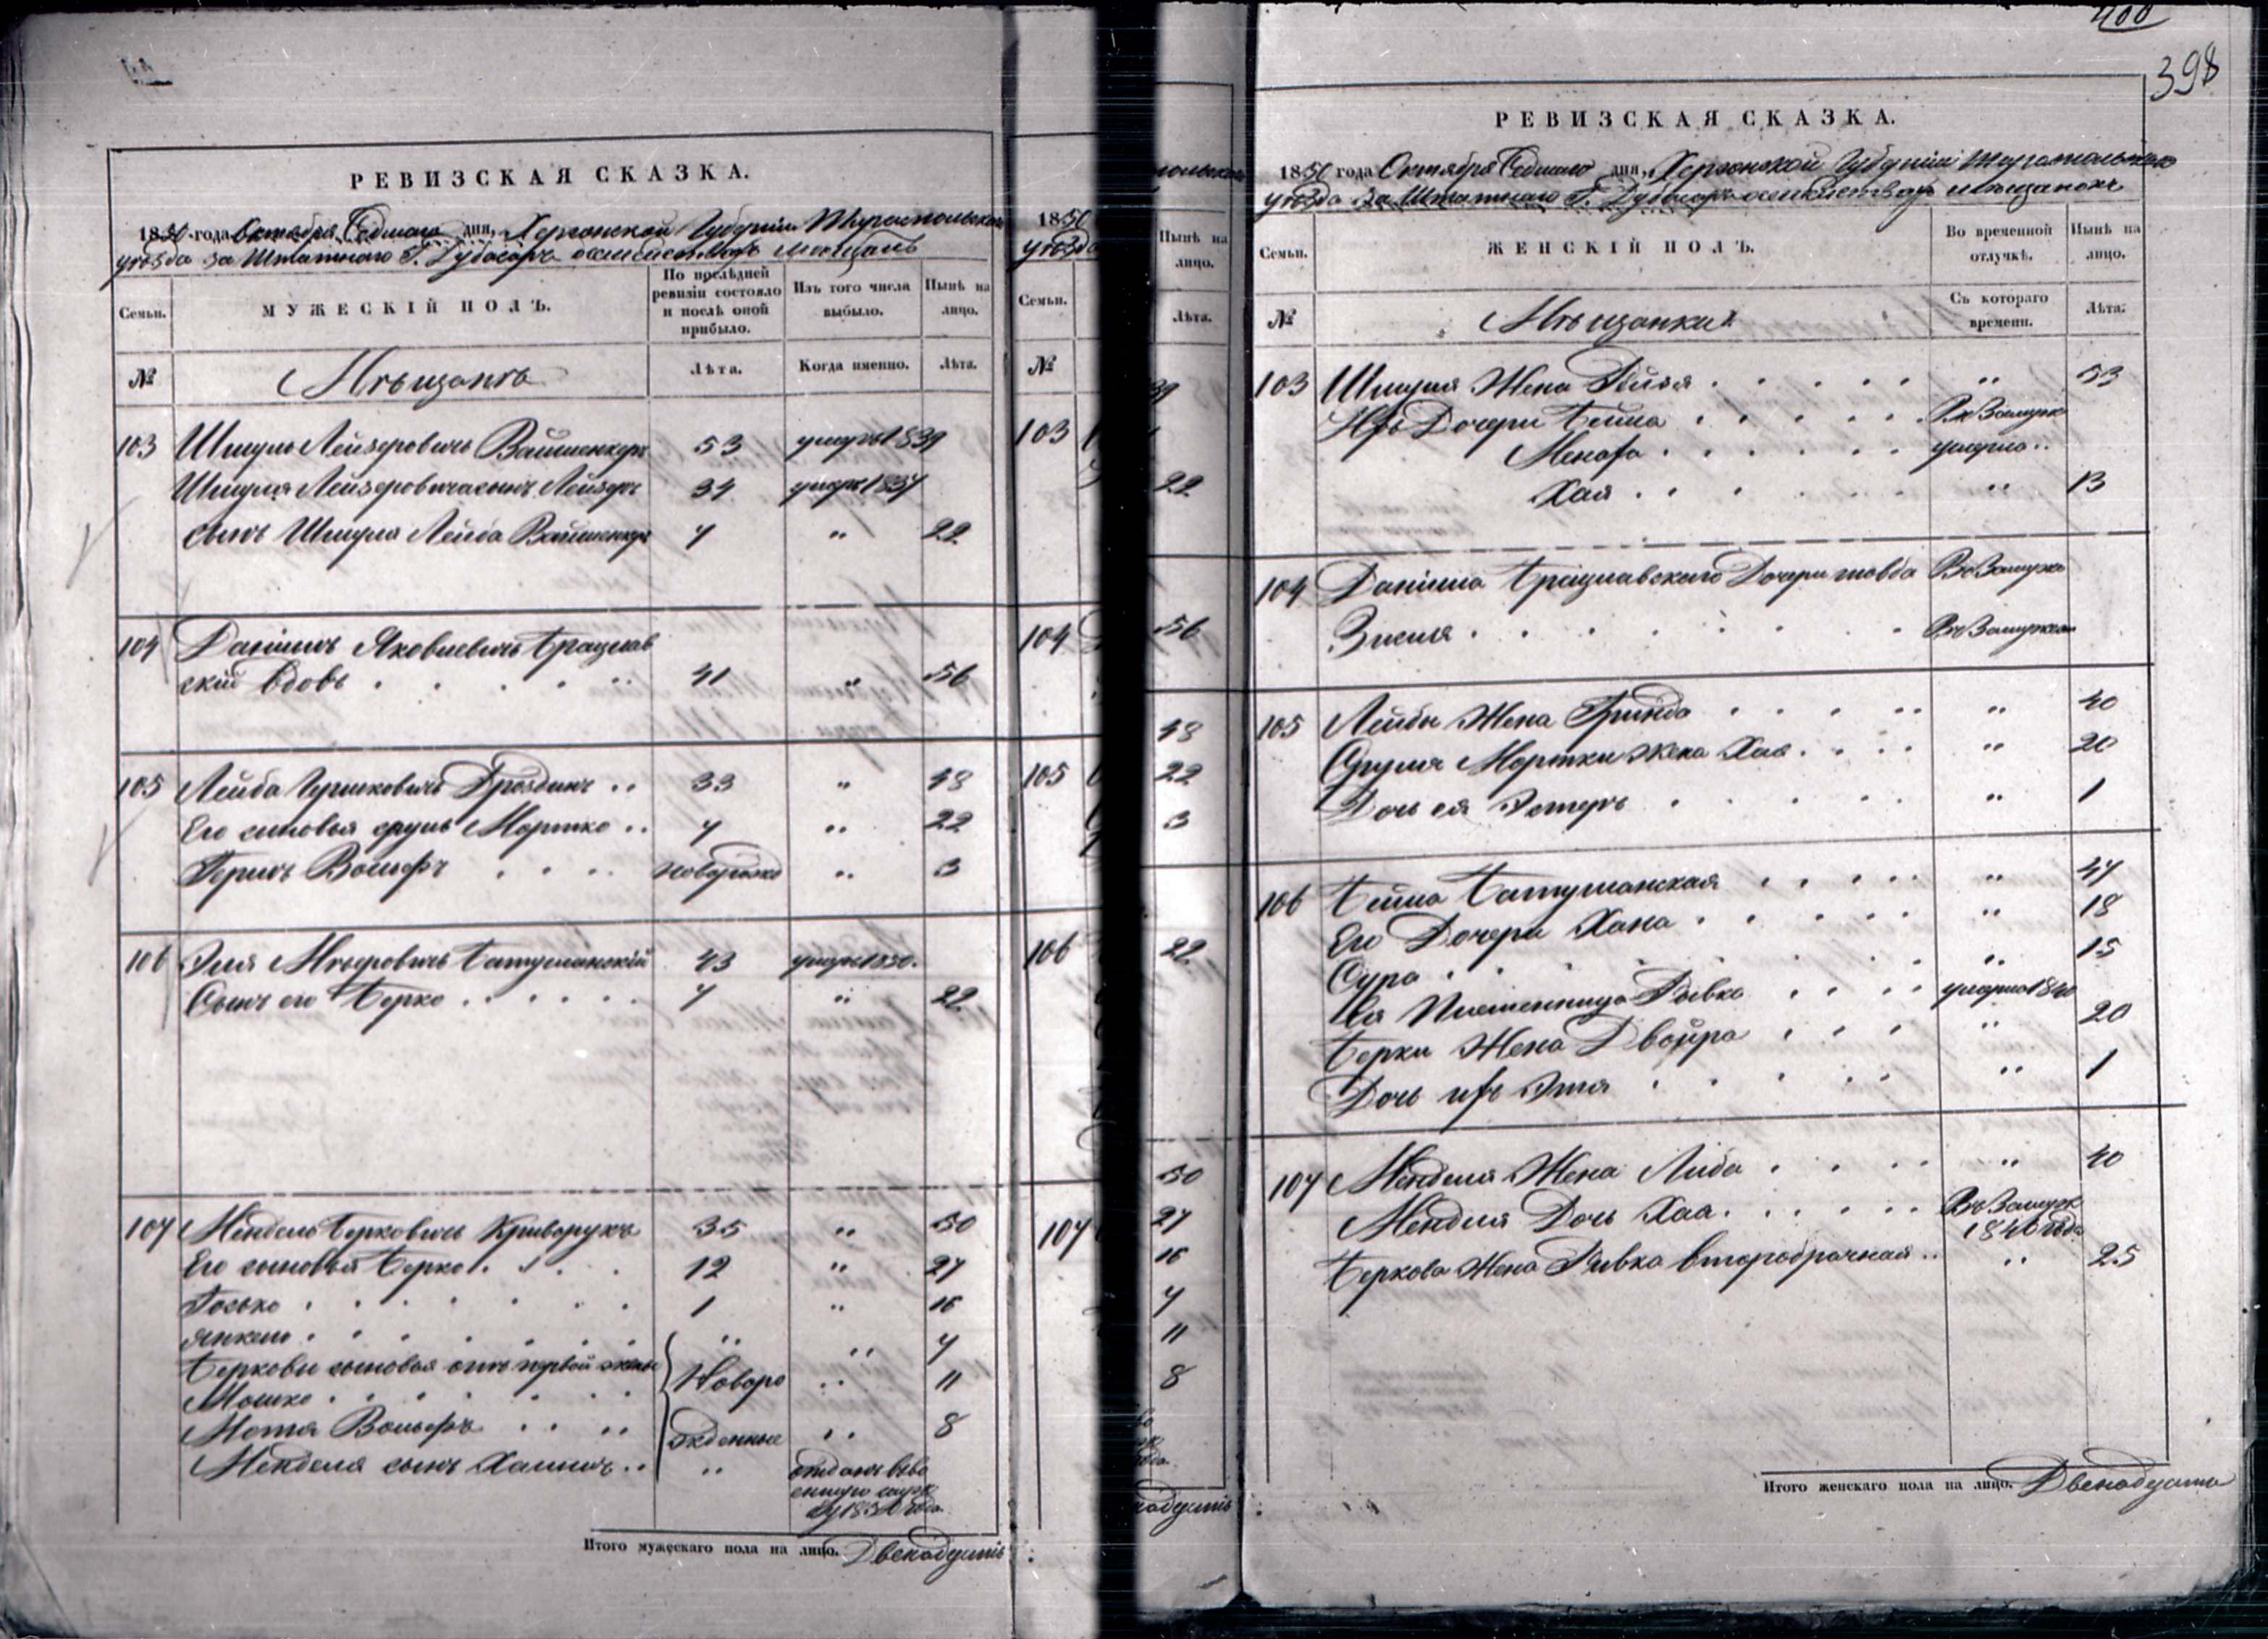 РЕВИЗСКАЯ СКАЗКА.
1850 года Октября Седмаго дня, Херсонской Губерніи Тираспольскаго
уѣзда За Штатнаго Г. Дубосаръ мѣщанъ
Семьи.
МУЖЕСКІЙ ПОЛЪ.
По послѣдней ревизіи состояло и послѣ оной прибыло.
Изъ того числа выбыло.
Нынѣ на лицо.
№
Мѣщанъ
Лѣта.
Когда именно.
Лѣта.
103 Шмуль Лейзеровичъ Вайшенкеръ 53 умеръ 1839
Шмуля Лейзеровича сынъ Лейзеръ 34 умеръ 1837
сынъ Шмуля Лейба Вайшенкеръ 7 " 22
104 Даніилъ Яковлевичъ Брацлав
скій вдовъ 41 " 56
105 Лейба Гершковичъ Гроздинъ 33 " 48
Его сыновья Сруль Мортко 7 " 22
Гершъ Вольфъ новорожд " 3
106 Эля Меѣровичъ Батушанскій 43 умеръ 1850.
Сынъ его Берко 7 " 22
107 Мендель Берковичъ Криворукъ 35 " 50
Его сыновья Берко 12 " 27
Іосько 1 " 16
Янкель " " 7
Берковы сыновья отъ первой жены
Мошко Новоро " 11
Мотя Вольфъ жденные " 8
Менделя сынъ Хаимъ " отданъ въ во
енную служ
бу 1850 года
Итого мужескаго пола на лицо. Двенадцать
1850
уѣзда
Семьи.
№
103
104
105
106
107
Нынѣ на
лицо.
Лѣта.
22
56
48
22
3
22
50
27
16
7
11
8
400
398
РЕВИЗСКАЯ СКАЗКА.
1850 года Октября Седмаго дня, Херсонской Губерніи Тираспольскаго
уѣзда За Штатнаго Г. Дубосаръ мѣщанокъ
Семьи.
ЖЕНСКІЙ ПОЛЪ.
Во временной отлучкѣ.
Нынѣ на лицо.
№
Мѣщанки
Съ котораго времени.
Лѣта.
103 Шмуля Жена Бейла " 53
Ихъ Дочери Бейла Въ Замуж
умерла
Хая " 13
104 Даніила Брацлавскаго Дочери Товба Въ Замуж
Зисля Въ Замужем
105 Лейбы Жена Фринда " 40
Сруля Мортки жена Хая " 20
Дочь ея Эстеръ " 1
106 Бейла Батушанская " 47
Его Дочери Хана " 18
Сура " 15
Ея Племенница Ривка умерла 1840
Берки Жена Двойра " 20
Дочь ихъ Этя " 1
107 Менделя Жена Либа " 40
Менделя Дочь Хая Въ Замуж
1840 года
Беркова Жена Ривка второбрачная " 25
Итого женскаго пола на лицо. Двенадцать